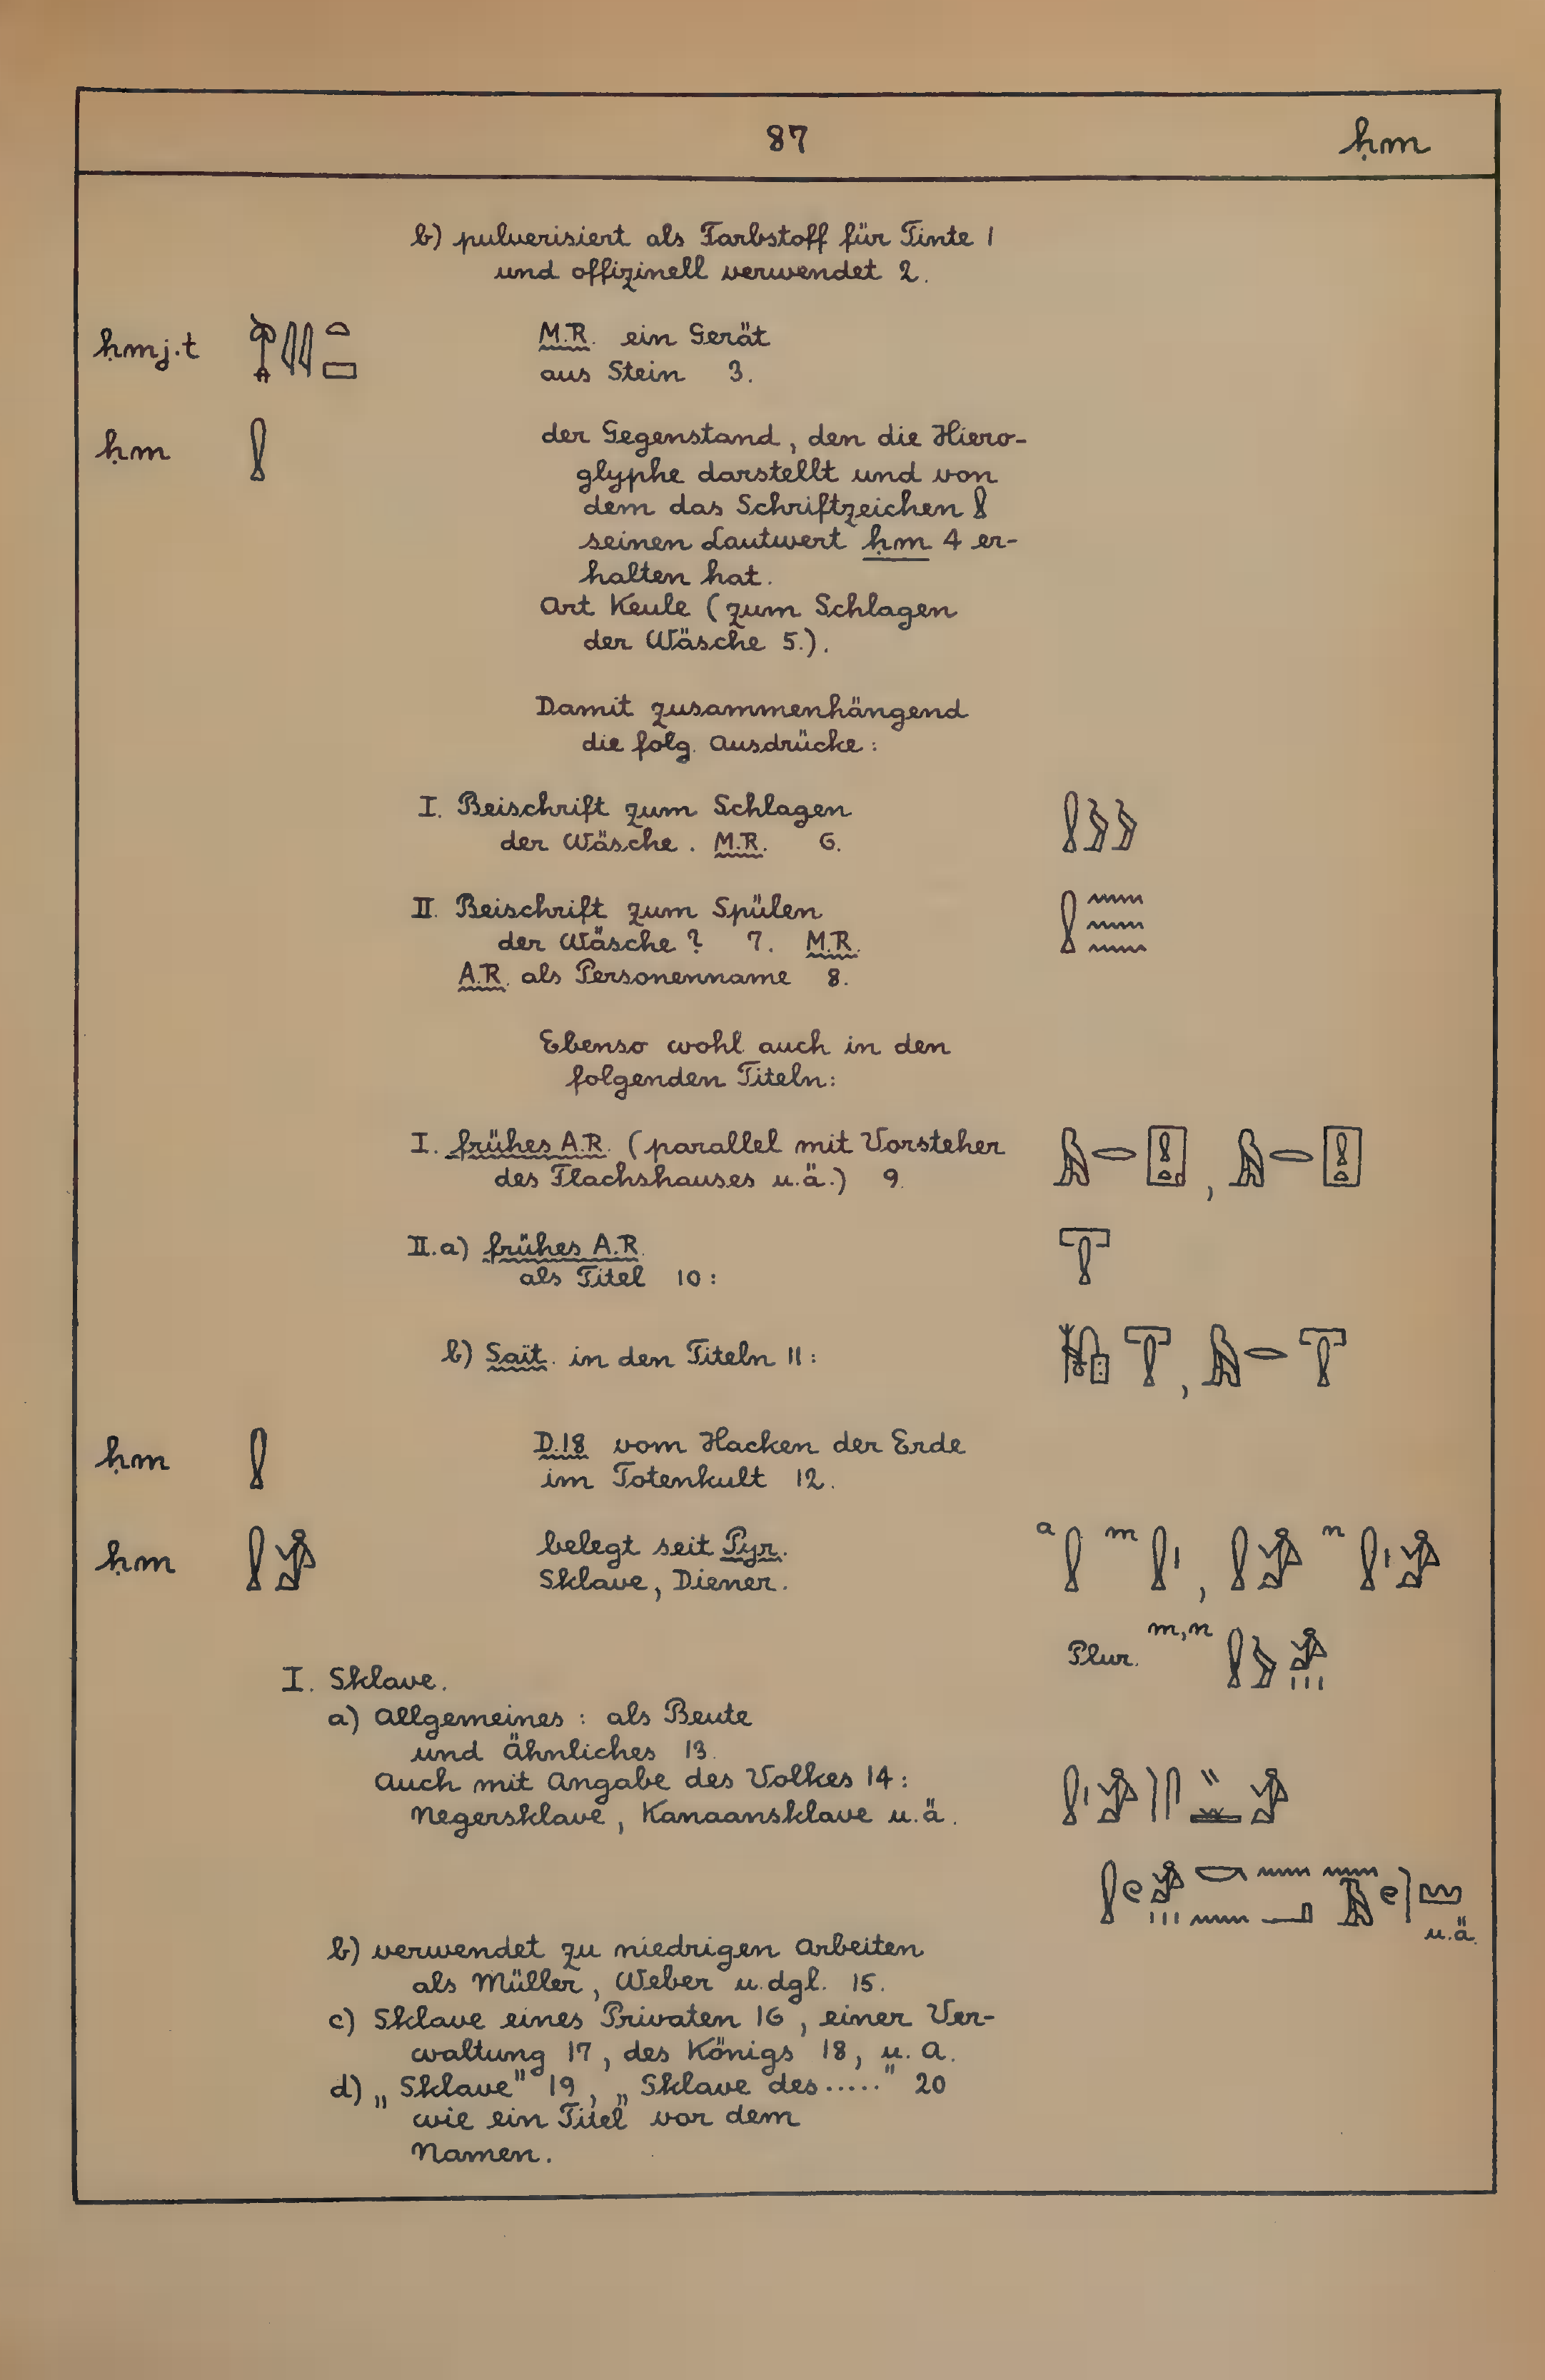 87 ḥm
b) pulverisiert als Farbstoff für Tinte 1
und offizinell verwendet 2.
ḥmj.t M.R. ein Gerät
aus Stein 3.
ḥm 𓍛 der Gegenstand, den die Hiero-
glyphe darstellt und von
dem das Schriftzeichen 𓍛
seinen Lautwert ḥm 4 er-
halten hat.
Art Keule (zum Schlagen
der Wäsche 5.).
Damit zusammenhängend
die folg. Ausdrücke:
I. Beischrift zum Schlagen 𓍛𓂾𓂾
der Wäsche. M.R. 6.
II. Beischrift zum Spülen 𓍛𓈗
der Wäsche? 7. M.R.
A.R. als Personenname 8.
Ebenso wohl auch in den
folgenden Titeln:
I. frühes A.R. (parallel mit Vorsteher
des Flachshauses u.ä.) 9.
II.a) frühes A.R.
als Titel 10:
b) Saït. in den Titeln 11:
ḥm 𓍛 D.18 vom Hacken der Erde
im Totenkult 12.
ḥm 𓍛𓀀 belegt seit Pyr. a 𓍛 m 𓍛𓏤, 𓍛𓀀 n 𓍛𓏤𓀀
Sklave, Diener.
Plur. m,n 𓍛𓃀𓀀𓏥
I. Sklave.
a) Allgemeines: als Beute
und Ähnliches 13.
Auch mit Angabe des Volkes 14:
Negersklave, Kanaansklave u.ä.
u.ä.
b) verwendet zu niedrigen Arbeiten
als Müller, Weber u.dgl. 15.
c) Sklave eines Privaten 16, einer Ver-
waltung 17, des Königs 18, u.A.
d) „Sklave" 19, „Sklave des....." 20
wie ein Titel vor dem
Namen.